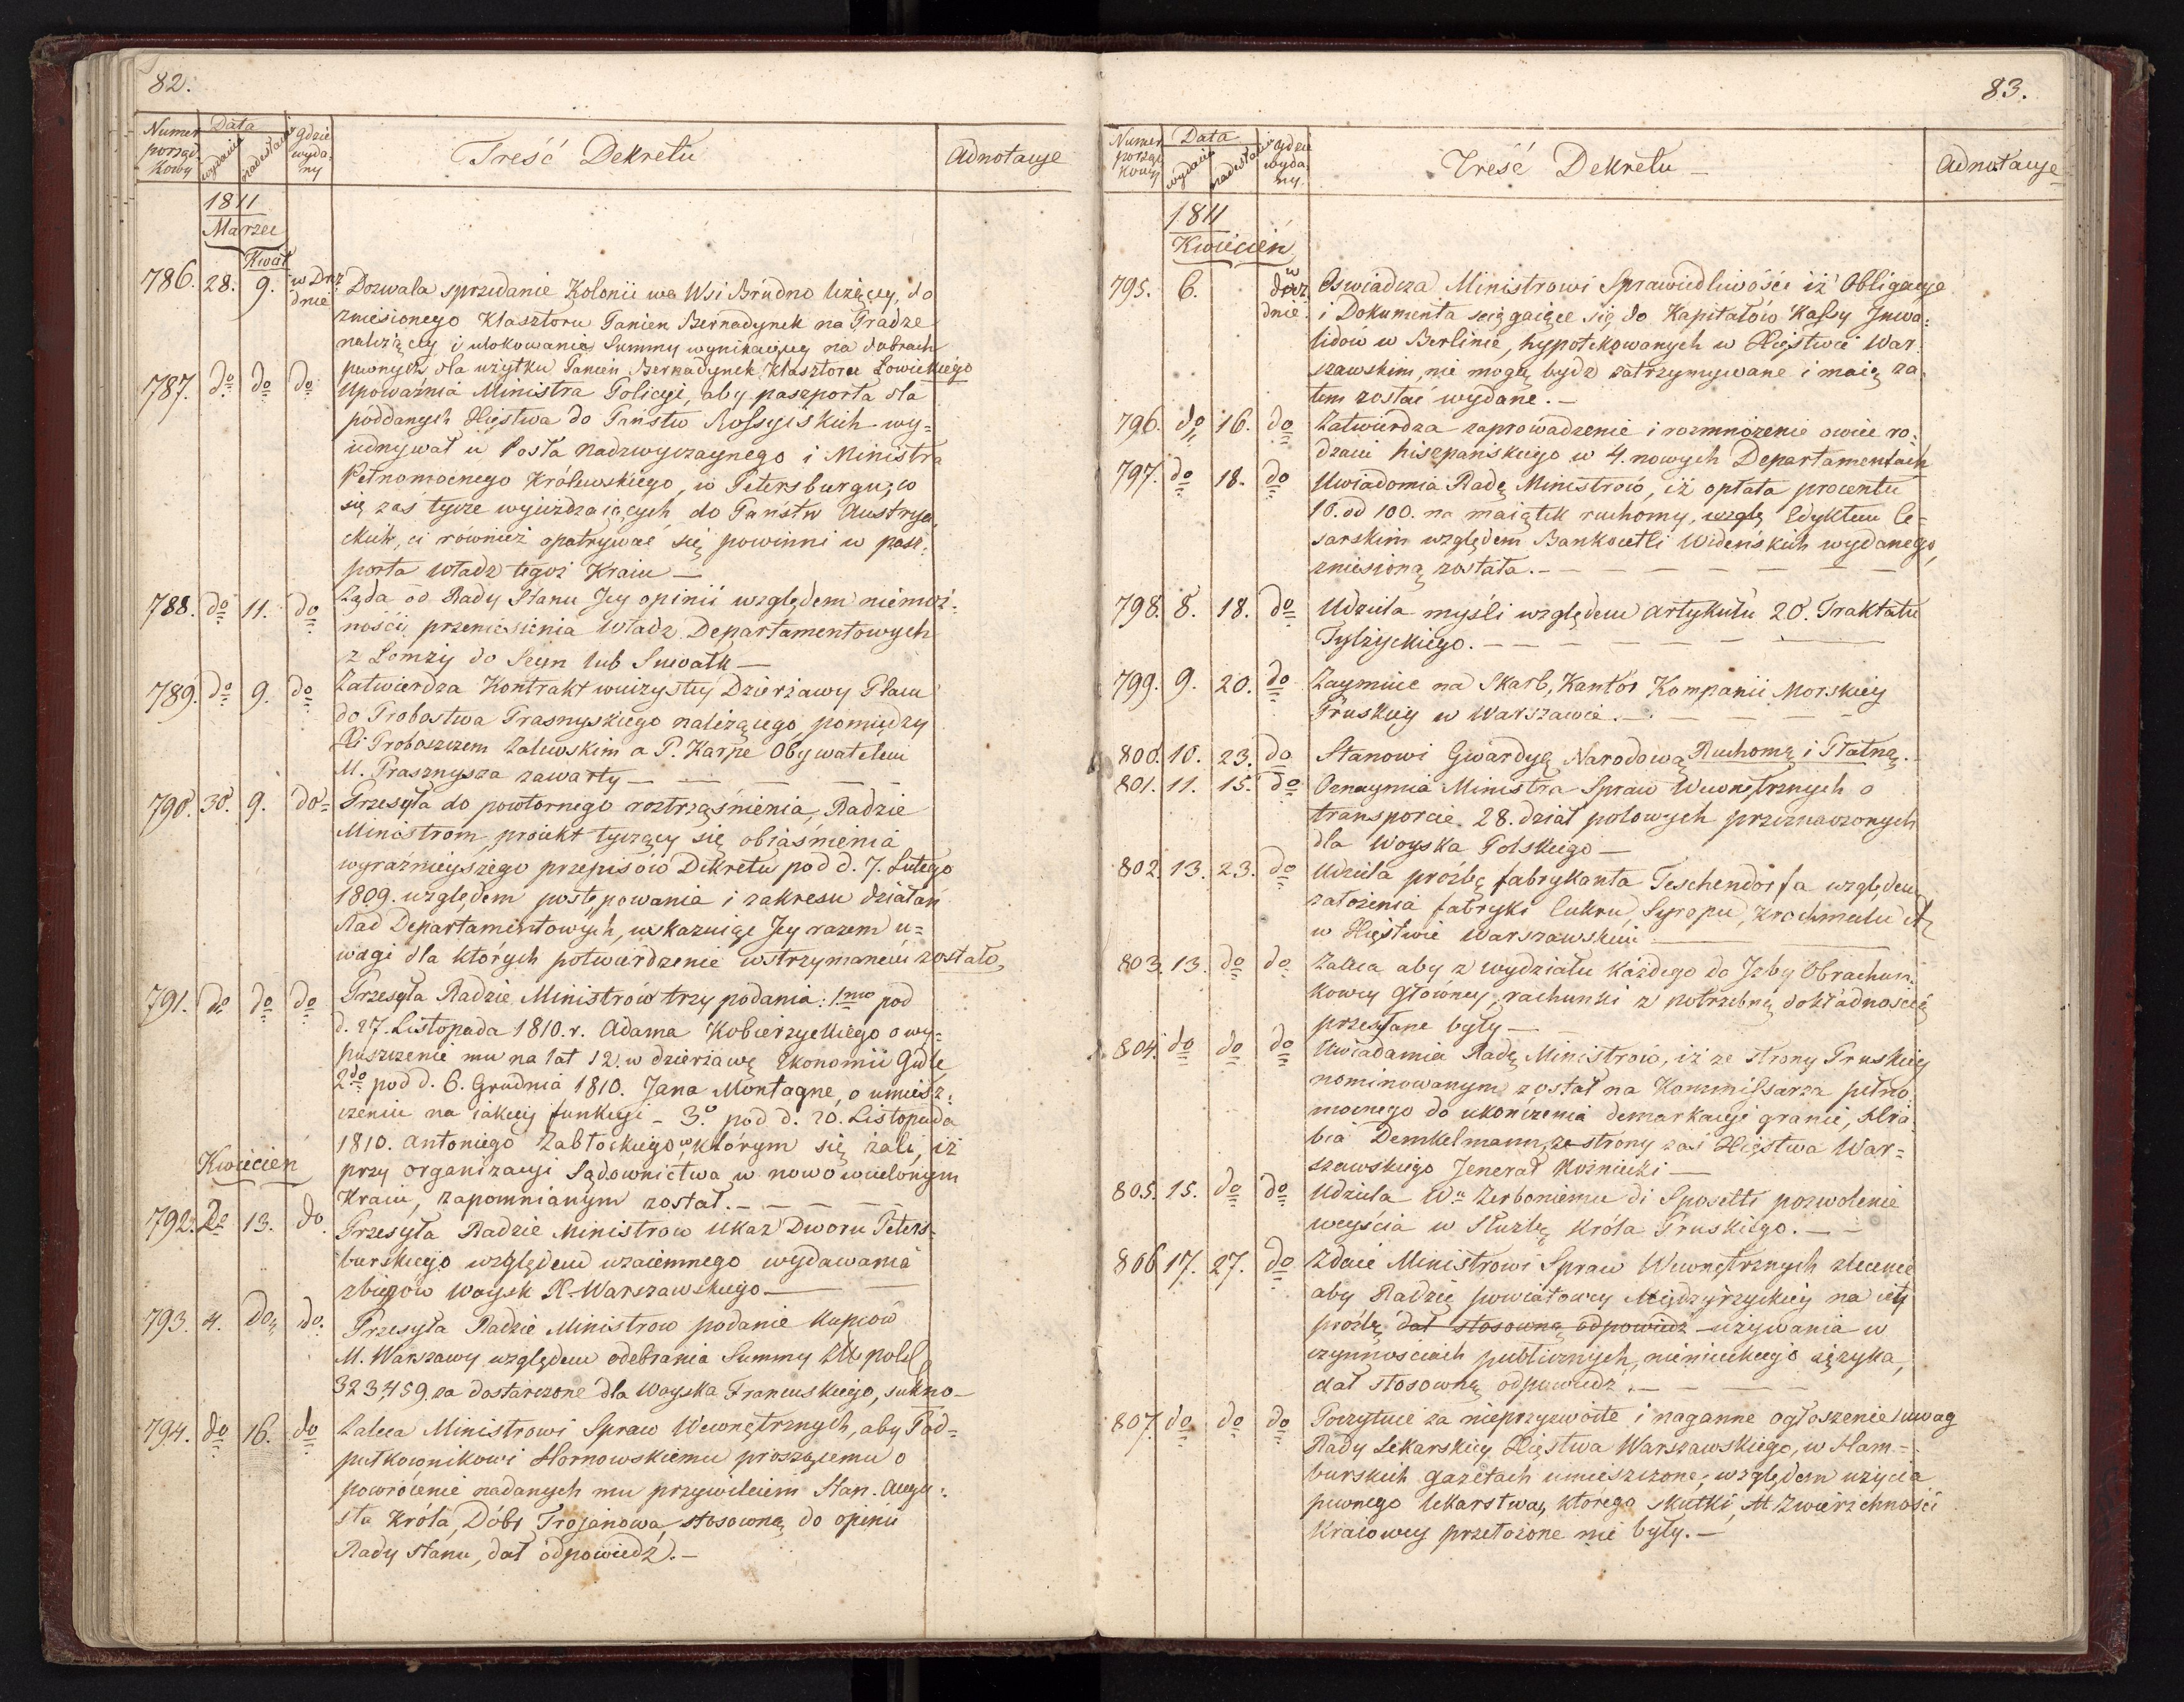 82.
Numer porząd. kowy
Data
wydania
nadesłania
gdzie wyda-ny
Treść Dekretu
Adnotacye
1811
Marzec
Kwiet
786. 28. 9. w Drezdnie Dozwala sprzedanie Kolonii we Wsi Brudno leżącey, do
zniesionego Klasztoru Panien Bernadynek na Pradze
należącey i ulokowania Summy wynikaiącey na dobrach
pewnych dla użytku Panien Bernadynek Klasztoru Łowickiego
787. do do do Upoważnia Ministra Policyi, aby paszporta dla
poddanych Xięstwa do Państw Rossyiskich wy-
iednywał u Posła nadzwyczaynego i Ministra
Pełnomocnego Królewskiego, w Petersburgu; co
się zaś tycze wyieżdzaiących do Państw Austrya-
ckich, ci również opatrywać się powinni w pasz-
porta Władz tegoż Kraiu —
788. do 11. do Żąda od Rady Stanu Jey opinii względem niemoż-
ności przeniesienia Władz Departamentowych
z Łomży do Seyn lub Suwałk —
789. do 9. do Zatwierdza Kontrakt wieczystey Dzierżawy Placu
do Probostwa Prasnyskiego należącego, pomiędzy
Xi Proboszczem Zalewskim a P. Karpe Obywatelem
M. Prasznysza zawarty —
790. 30. 9. do Przesyła do powtornego roztrząśnienia, Radzie
Ministrom, proiekt tyczący się obiaśnienia
wyraźnieyszego przepisów Dekretu pod d. 7. Lutego
1809. względem postępowania i zakresu działań
Rad Departamentowych, wskazuiąc Jey razem u-
wagi dla których potwierdzenie wstrzymanem zostało,
791. do do do Przesyła Radzie Ministrów trzy podania: 1mo pod
d. 27. Listopada 1810. r. Adama Kobierzyckiego o wy-
puszczenie mu na lat 12. w dzierżawę Ekonomii Gidle
2do pod d. 6. Grudnia 1810. Jana Montagne, o umiesz-
czenie na iakiey funkcyi – 3o pod d. 20. Listopada
1810. Antoniego Zabłockiego, w którym się żali, iż
przy organizacyi Sądownictwa w nowo wcielonym
Kraiu, zapomnianym został. —
Kwiecień
792. 2o 13. do. Przesyła Radzie Ministrow Ukaz Dworu Peters-
burskiego względem wzaiemnego wydawania
zbiegów Woysk X. Warszawskiego —
793. 4. Do do. Przesyła Radzie Ministrow podanie Kupców
M. Warszawy względem odebrania Summy
323,459. za dostarczone dla Woyska Francuskiego, sukno —
794. do 16. do Zaleca Ministrowi Spraw Wewnętrznych, aby Pod-
pułkownikowi Hornowskiemu proszącemu o
powrócenie nadanych mu przywileiem Stan. Augu-
sta Króla, Dóbr Trojanowa, stosowną do opinii
Rady Stanu, dał odpowiedź. —
83.
Numer porząd kowy
Data
wydania
nadesłania
gdzie wyda-ny.
Treść Dekretu —
Adnotacye
1811
Kwiecień
795. 6. w drezdnie. Oswiadcza Ministrowi Sprawiedliwości iż Obligacye
i Dokumenta sciągaiące się do Kapitałów Kassy Inwa-
lidów w Berlinie, hypotekowanych w Xięstwie War-
szawskim, nie mogą bydź zatrzymywane i maią za-
tem zostać wydane. —
796. do 16. do Zatwierdza zaprowadzenie i rozmnożenie owiec ro-
dzaiu hiszpańskiego w 4. nowych Departamentach
797. do 18. do Uwiadomia Radę Ministrów, iż opłata procentu
10. od 100. na maiątek ruchomy, wzglę Edyktem Ce-
sarskim względem Bankocetli Wideńskich wydanego,
zniesioną została. —
798. 8. 18. do Udziela myśli względem Artykułu 20. Traktatu
Tylżyckiego. —
799. 9. 20. do Zaymuie na Skarb, Kantor Kompanii Morskiey
Pruskiey w Warszawie. —
800. 10. 23. do Stanowi Gwardyą Narodową Ruchomą i Płatną. —
801. 11. 15. do Oznaymia Ministra Spraw Wewnętrznych o
transporcie 28. dział polowych przeznaczonych
dla Woyska Polskiego —
802. 13. 23. do Udziela proźbę fabrykanta Teschendorfa względem
założenia fabryki Cukru, Syropu, Krochmalu etc
w Xięstwie Warszawskim —
803. 13. do do Zaleca aby z wydziału każdego do Izby Obrachun-
kowey Głowney, rachunki z potrzebną dokładnoscią
przesłane były —
804. do do do Uwiadamia Radę Ministrow, iż ze strony Pruskiey
nominowanym został na Kommissarza pełno-
mocnego do ukończenia demarkacyi granic, Hra-
bia Demkelmann, ze strony zaś Xięstwa War-
szawskiego Jenerał Rożniecki —
805. 15. do do Udziela Wu Zerboniemu di Sposetti pozwolenie
weyścia w Służbę Króla Pruskiego. —
806 17. 27. do Zdaie Ministrowi Spraw Wewnętrznych zlecenie
aby Radzie powiatowey Międzyrzyckiey na iey
proźbę dał stosowną odpowiedź używania w
czynnosciach publicznych, niemieckiego ięzyka,
dał stosowną odpowiedź. —
807. do do do Poczytuie za nieprzyzwoite i naganne ogłoszenie uwag
Rady Lekarskiey Xięstwa Warszawskiego, w Ham-
burskich gazetach umieszczone, względem użycia
pewnego lekarstwa, którego skutki, Zwierzchności
Kraiowey przełożone nie były. —